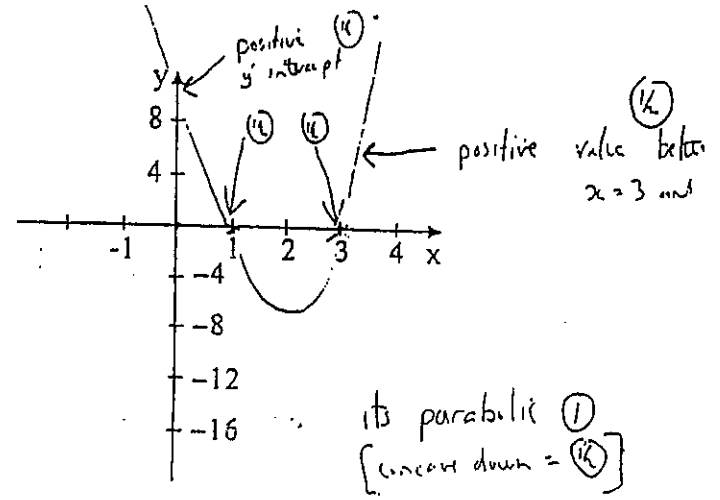 positive ½
y intercept
y
8
½ ½
½
positive value between
4
x = 3 and
-1 1 2 3 4 x
-4
-8
-12
-16
its parabolic 1
[concave down = ½]